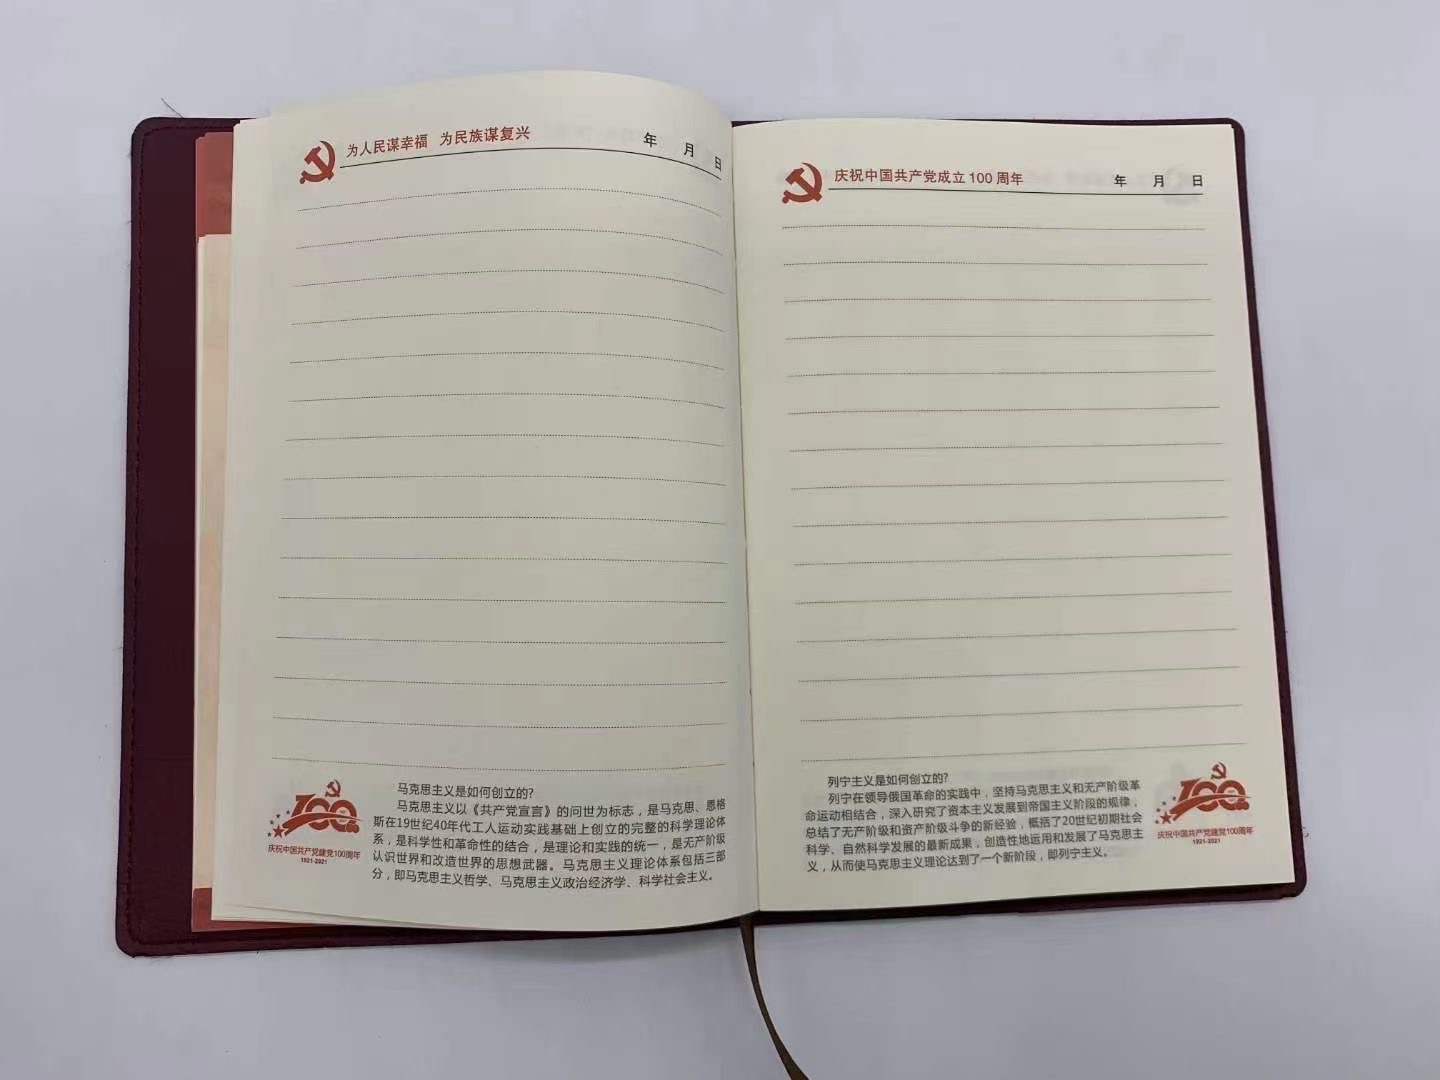 为人民谋幸福 为民族谋复兴 年 月 日
马克思主义是如何创立的?
马克思主义以《共产党宣言》的问世为标志，是马克思、恩格
斯在19世纪40年代工人运动实践基础上创立的完整的科学理论体
系，是科学性和革命性的结合，是理论和实践的统一，是无产阶级
认识世界和改造世界的思想武器。马克思主义理论体系包括三部
分，即马克思主义哲学、马克思主义政治经济学、科学社会主义。
100
庆祝中国共产党建党100周年
1921-2021
庆祝中国共产党成立100周年 年 月 日
列宁主义是如何创立的?
列宁在领导俄国革命的实践中，坚持马克思主义和无产阶级革
命运动相结合，深入研究了资本主义发展到帝国主义阶段的规律，
总结了无产阶级和资产阶级斗争的新经验，概括了20世纪初期社会
科学、自然科学发展的最新成果，创造性地运用和发展了马克思主
义，从而使马克思主义理论达到了一个新阶段，即列宁主义。
100
庆祝中国共产党建党100周年
1921-2021